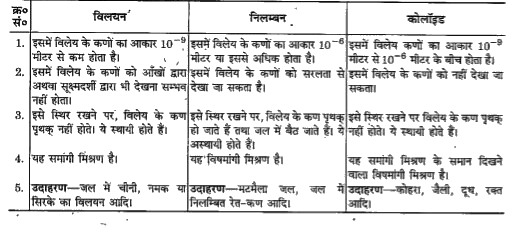 क्र० सं० विलयन निलम्बन कोलॉइड
1. इसमें विलेय के कणों का आकार 10⁻⁹ मीटर से कम होता है।
इसमें विलेय के कणों का आकार 10⁻⁶ मीटर या इससे अधिक होता है।
इसमें विलेय कणों का आकार 10⁻⁹ मीटर से 10⁻⁶ मीटर के बीच होता है।
2. इसमें विलेय के कणों को आँखों द्वारा अथवा सूक्ष्मदर्शी द्वारा भी देखना सम्भव नहीं होता।
इसमें विलेय के कणों को सरलता से देखा जा सकता है।
इसमें विलेय के कणों को नहीं देखा जा सकता।
3. इसे स्थिर रखने पर, विलेय के कण पृथक् नहीं होते। ये स्थायी होते हैं।
इसे स्थिर रखने पर, विलेय के कण पृथक् हो जाते हैं तथा जल में बैठ जाते हैं। ये अस्थायी होते हैं।
इसे स्थिर रखने पर, विलेय के कण पृथक् नहीं होते। ये स्थायी होते हैं।
4. यह समांगी मिश्रण है।
यह विषमांगी मिश्रण है।
यह समांगी मिश्रण के समान दिखने वाला विषमांगी मिश्रण है।
5. उदाहरण—जल में चीनी, नमक या सिरके का विलयन आदि।
उदाहरण—मटमैला जल, जल में निलम्बित रेत-कण आदि।
उदाहरण—कोहरा, जैली, दूध, रक्त आदि।